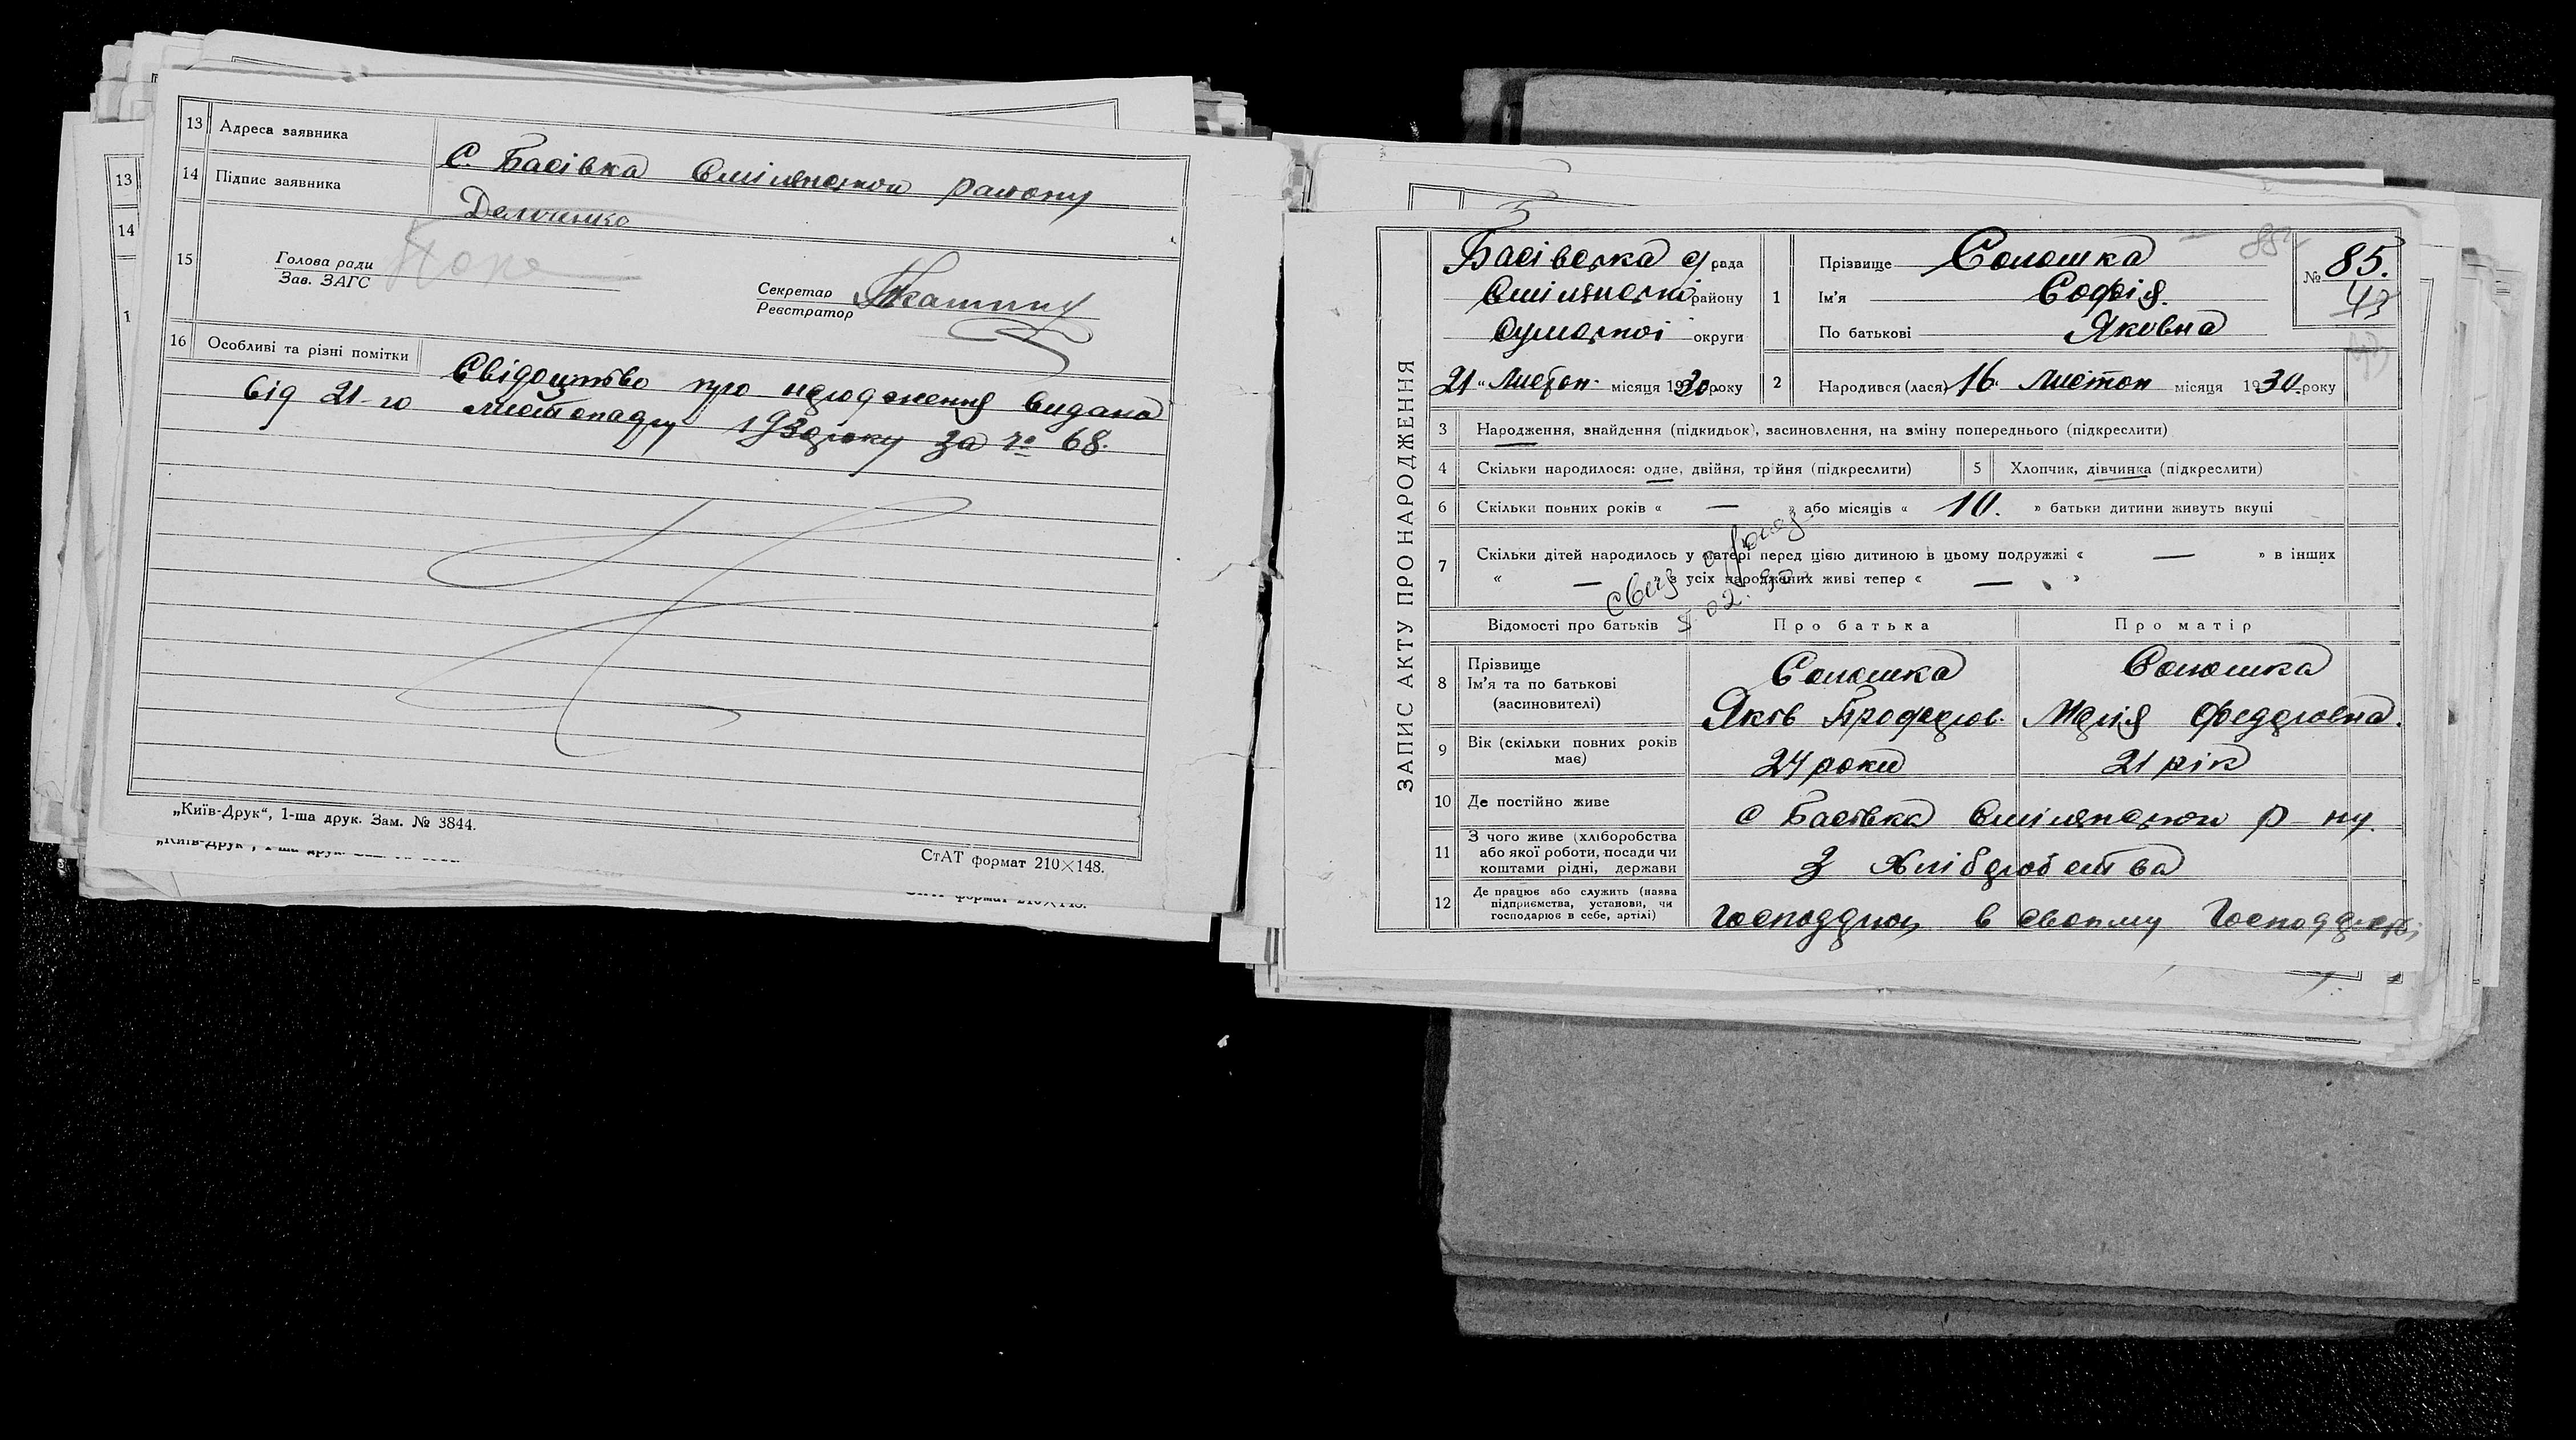 13 Адреса заявника С. Басівка Смілянской району
14 Підпис заявника
15 Голова ради
Зав. ЗАГС
Секретар
Реєстратор
16 Особливі та різні помітки Свідоцтво про народження видано
від 21-го листопаду 1930 року за № 68.
„Київ-Друк“, 1-ша друк. Зам. № 3844.
СтАТ формат 210×148.
13
14
ЗАПИС АКТУ ПРО НАРОДЖЕННЯ
Басівська с/рада
Смілянскої району
Сумської округи
21 „ Листоп. місяця 1930 року
1 Прізвище Солошка
Ім'я Софія.
По батькові Яковна
№ 85.
43
2 Народився (лася) 16 „ Листоп місяця 1930. року
3 Народження, знайдення (підкидьок), засиновлення, на зміну попереднього (підкреслити)
4 Скільки народилося: одне, двійня, трійня (підкреслити) 5 Хлопчик, дівчинка (підкреслити)
6 Скільки повних років « — » або місяців « 10. » батьки дитини живуть вкупі
7 Скільки дітей народилось у матері перед цією дитиною в цьому подружжі « — » в інших
« — » з усіх народжених живі тепер « — »
Відомості про батьків Про батька Про матір
8 Прізвище Солошка Солошка
Ім'я та по батькові
(засиновителі) Яків Марія Федоровна.
9 Вік (скільки повних років має) 24 роки 21 рік
10 Де постійно живе с Басівка Смілянской р-ну.
11 З чого живе (хліборобства
або якої роботи, посади чи
коштами рідні, держави З Хліборобства
12 Де працює або служить (назва
підприємства, установи, чи
господарює в себе, артілі) Господарює в своєму Господарстві